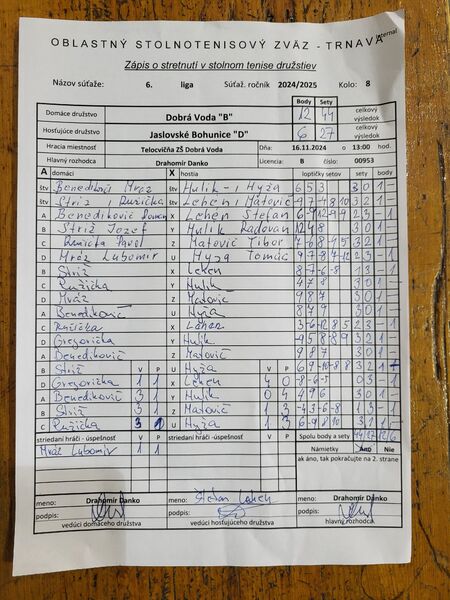 Internal
OBLASTNÝ STOLNOTENISOVÝ ZVÄZ - TRNAVA
Zápis o stretnutí v stolnom tenise družstiev
Názov súťaže: 6. liga Súťaž. ročník 2024/2025 Kolo: 8
Body Sety
Domáce družstvo Dobrá Voda "B" 12 44 celkový výsledok
Hosťujúce družstvo Jaslovské Bohunice "D" 6 27 celkový výsledok
Hracia miestnosť Telocvičňa ZŠ Dobrá Voda Dňa: 16.11.2024 o 13:00 hod.
Hlavný rozhodca Drahomír Danko Licencia: B číslo: 00953
A domáci X hostia loptičky setov sety body
štv Benedikovič Mráz štv Hulik - Hyža 6 5 3 3 0 1 -
štv Stríž Ružička štv Lehen Matovič
A Benedikovič X Lehen Štefan
B Stríž Jozef Y Hulik Radovan 3 0 1 -
C Ružička Pavel Z Matovič Tibor 3 2 1 -
D Mráz Lubomír U Hyža Tomáš
B Stríž X Lehen 8 -7 -6 -8 1 3 - 1
C Ružička Y Hulik 4 7 8 3 0 1 -
D Mráz Z Matovič 9 8 7 3 0 1 -
A Benedikovič U Hyža 8 7 9 3 0 1 -
C Ružička X Lehen 2 3 - 1
D Gregorička Y Hulik 3 2 1 -
A Benedikovič Z Matovič 9 8 7 3 0 1 -
B Stríž V P U Hyža V P 3 2 1
D Gregorička 1 1 X Lehen 4 0 -8 -6 -5 0 3 - 1
A Benedikovič 3 1 Y Hulik 0 4 4 9 6 3 0 1 -
B Stríž 3 1 Z Matovič 1 3 -4 3 -6 -8 1 3 - 1
C Ružička 3 1 U Hyža 1 3 6 -9 8 10 3 1 1 -
striedaní hráči - úspešnosť V P striedaní hráči - úspešnosť V P Spolu body a sety 44 27 12 6
Mráz Lubomír 1 1 Námietky Áno Nie
ak áno, tak pokračujte na 2. strane
meno: Drahomír Danko meno: Štefan Lehen meno: Drahomír Danko
podpis: podpis: podpis:
vedúci domáceho družstva vedúci hosťujúceho družstva hlavný rozhodca